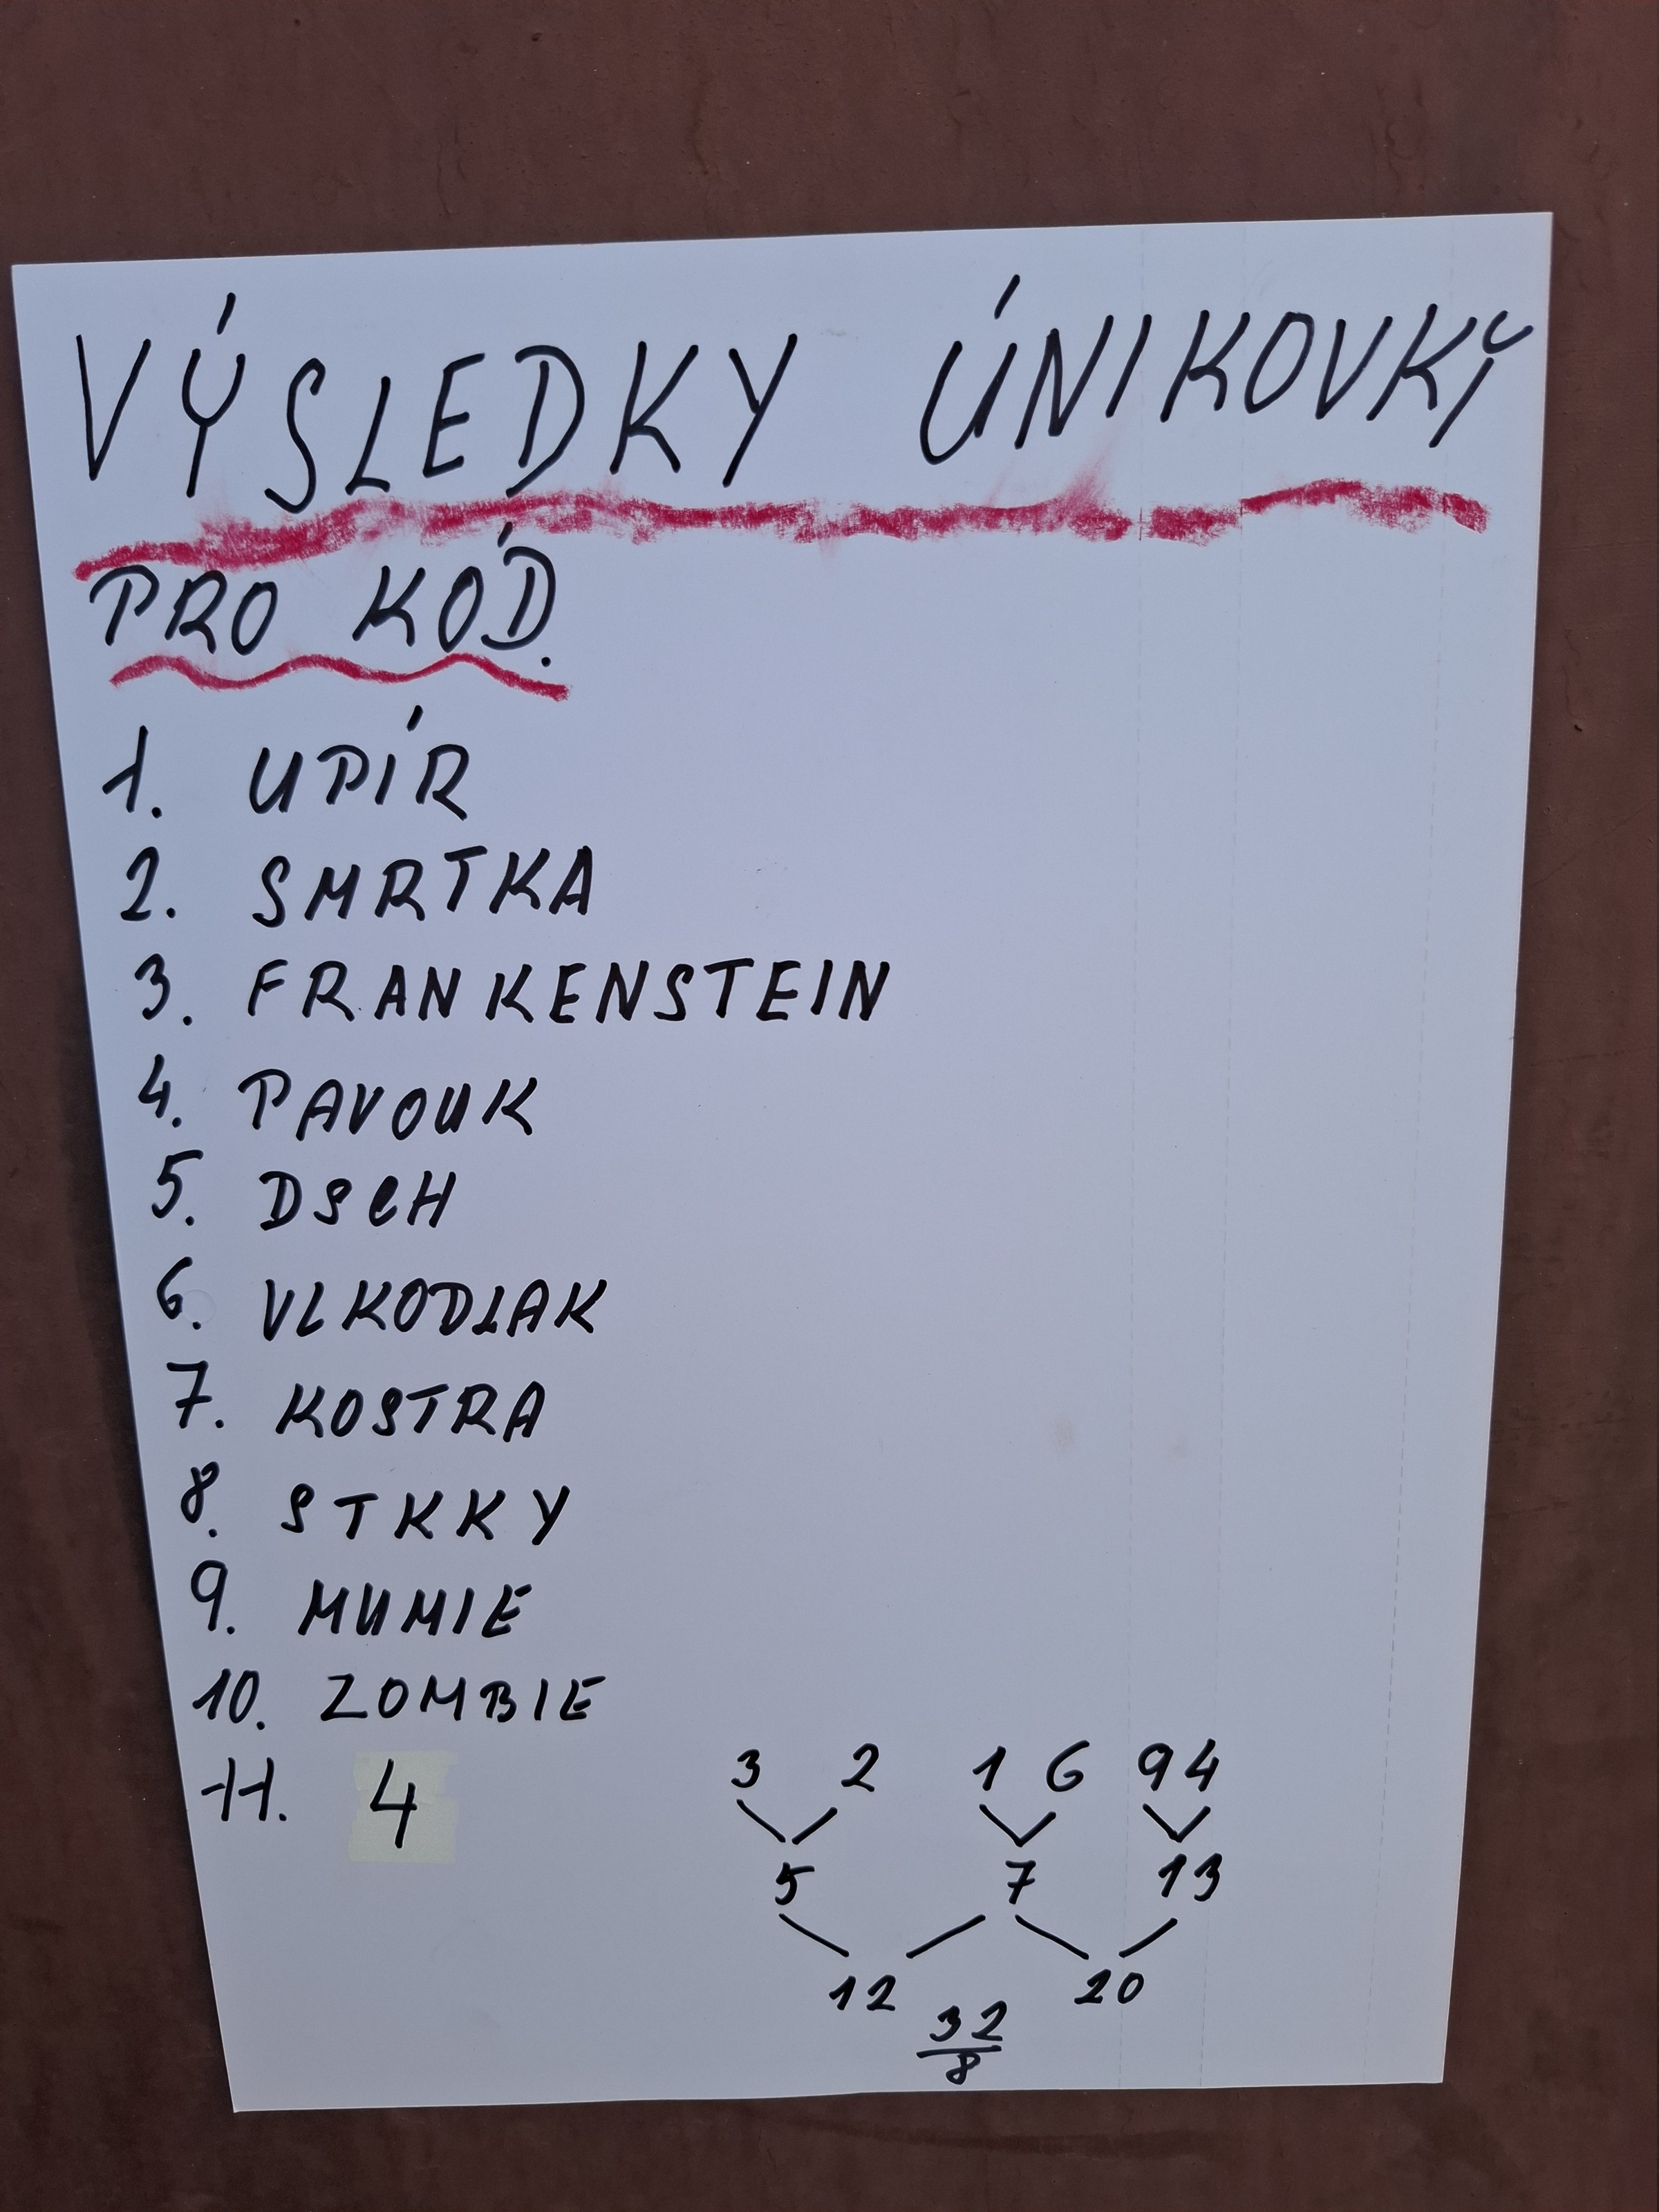 VÝSLEDKY ÚNIKOVKY
PRO KÓD.
1. UPÍR
2. SMRTKA
3. FRANKENSTEIN
4. PAVOUK
5. DSCH
6. VLKODLAK
7. KOSTRA
8. STKKY
9. MUMIE
10. ZOMBIE
11. 4
3 2 1 6 9 4
5 7 13
12 20
32
8